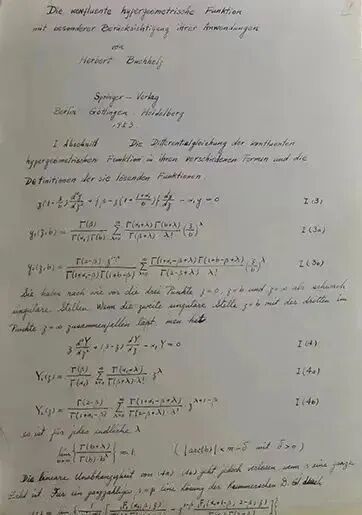 Die konfluente hypergeometrische Funktion
mit besonderer Berücksichtigung ihrer Anwendungen
von
Herbert Buchholz
Springer – Verlag
Berlin Göttingen Heidelberg
1953
I. Abschnitt Die Differentialgleichung der konfluenten
hypergeometrischen Funktion in ihren verschiedenen Formen und die
Definitionen der sie lösenden Funktionen.
z(1-z/b) d²y/dz² + {β-z(1+(1+α)/b)} dy/dz - α y = 0 I(3)
y₁(z,b) = Γ(β)/(Γ(α)Γ(b)) Σ Γ(α+λ)Γ(b+λ)/(Γ(β+λ) λ!) (z/b)^λ I(3a)
y₂(z,b) = Γ(2-β) z^(1-β)/(Γ(1+α-β)Γ(1+b-β)) Σ Γ(1+α-β+λ)Γ(1+b-β+λ)/(Γ(2-β+λ) λ!) (z/b)^λ I(3b)
Sie haben nach wie vor die drei Punkte z=0, z=b und z=∞ als schwach
singuläre Stellen. Wenn die zweite singuläre Stelle z=b mit der dritten im
Punkte z=∞ zusammenfallen läßt man hat
z d²Y/dz² + (β-z) dY/dz - α Y = 0 I(4)
Y₁(z) = Γ(β)/Γ(α) Σ Γ(α+λ)/(Γ(β+λ) λ!) z^λ I(4a)
Y₂(z) = Γ(2-β)/Γ(1+α-β) Σ Γ(1+α-β+λ)/(Γ(2-β+λ) λ!) z^(λ+1-β) I(4b)
es ist für jedes endliche λ
lim {Γ(b+λ)/(Γ(b) b^λ)} = 1. (|arc(b)| < π-δ mit δ>0)
Die lineare Unabhängigkeit von (4a) (4b) geht jedoch verloren wenn β eine ganze
Zahl ist. Für ein ganzzahliges β=p eine Lösung der Kummerschen D. Gl. durch